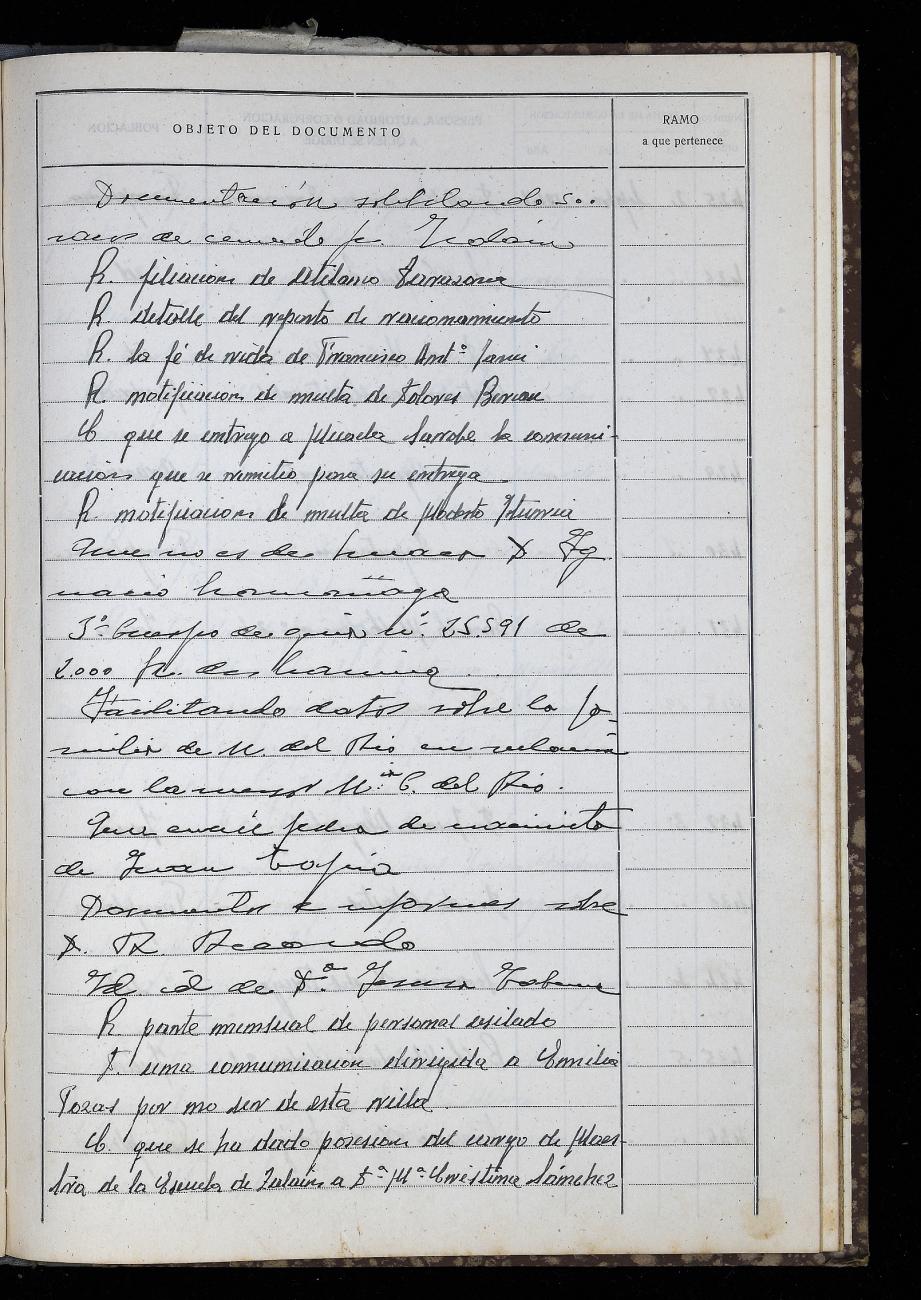 OBJETO DEL DOCUMENTO
RAMO
a que pertenece
Documentación solicitando
de cemento
R. filiacion de Atilano Tarazona
R. detalle del reparto de racionamiento
R. la fé de vida de Francisco Antº
R. notificacion de multa de Dolores
C. que se entrego a la comuni-
cacion que se remitio para su entrega
R. notificacion de multa de Modesto Iturria
Que no es de D. Ig
nacio
3º Cuerpo de nº 25.591 de
2.000 de harina
Facilitando datos sobre la fa-
milia de M. del Rio en relación
con la menor Mª C. del Rio.
Que envíe fecha de nacimiento
de Juan Tapia
Documentos e informes sobre
D. R. Recondo
Id. id de Dª
R. parte mensual de personal asilado
D. una comunicación dirigida a Emilia
Pozas por no ser de esta villa
C. que se ha dado posesion del cargo de Maes-
tra de la Escuela de a Dª Mª Cristina Sánchez